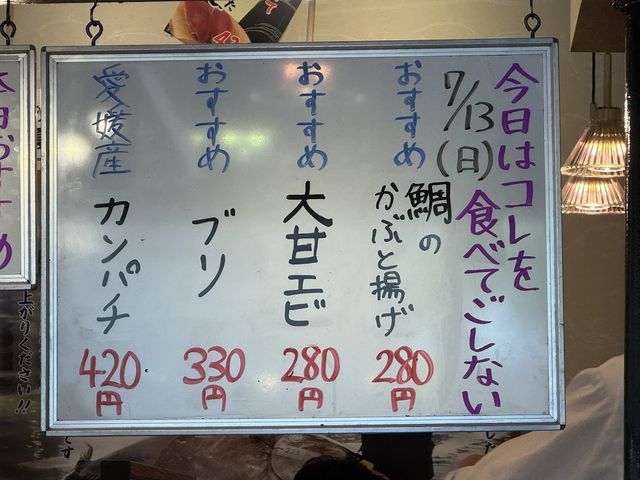 今日はコレを
食べてごしない
7/13(日)
おすすめ
鯛の
かぶと揚げ
280円
おすすめ
大甘エビ
280円
おすすめ
ブリ
330円
愛媛産
カンパチ
420円
本日おすすめ
上がりください!!
です